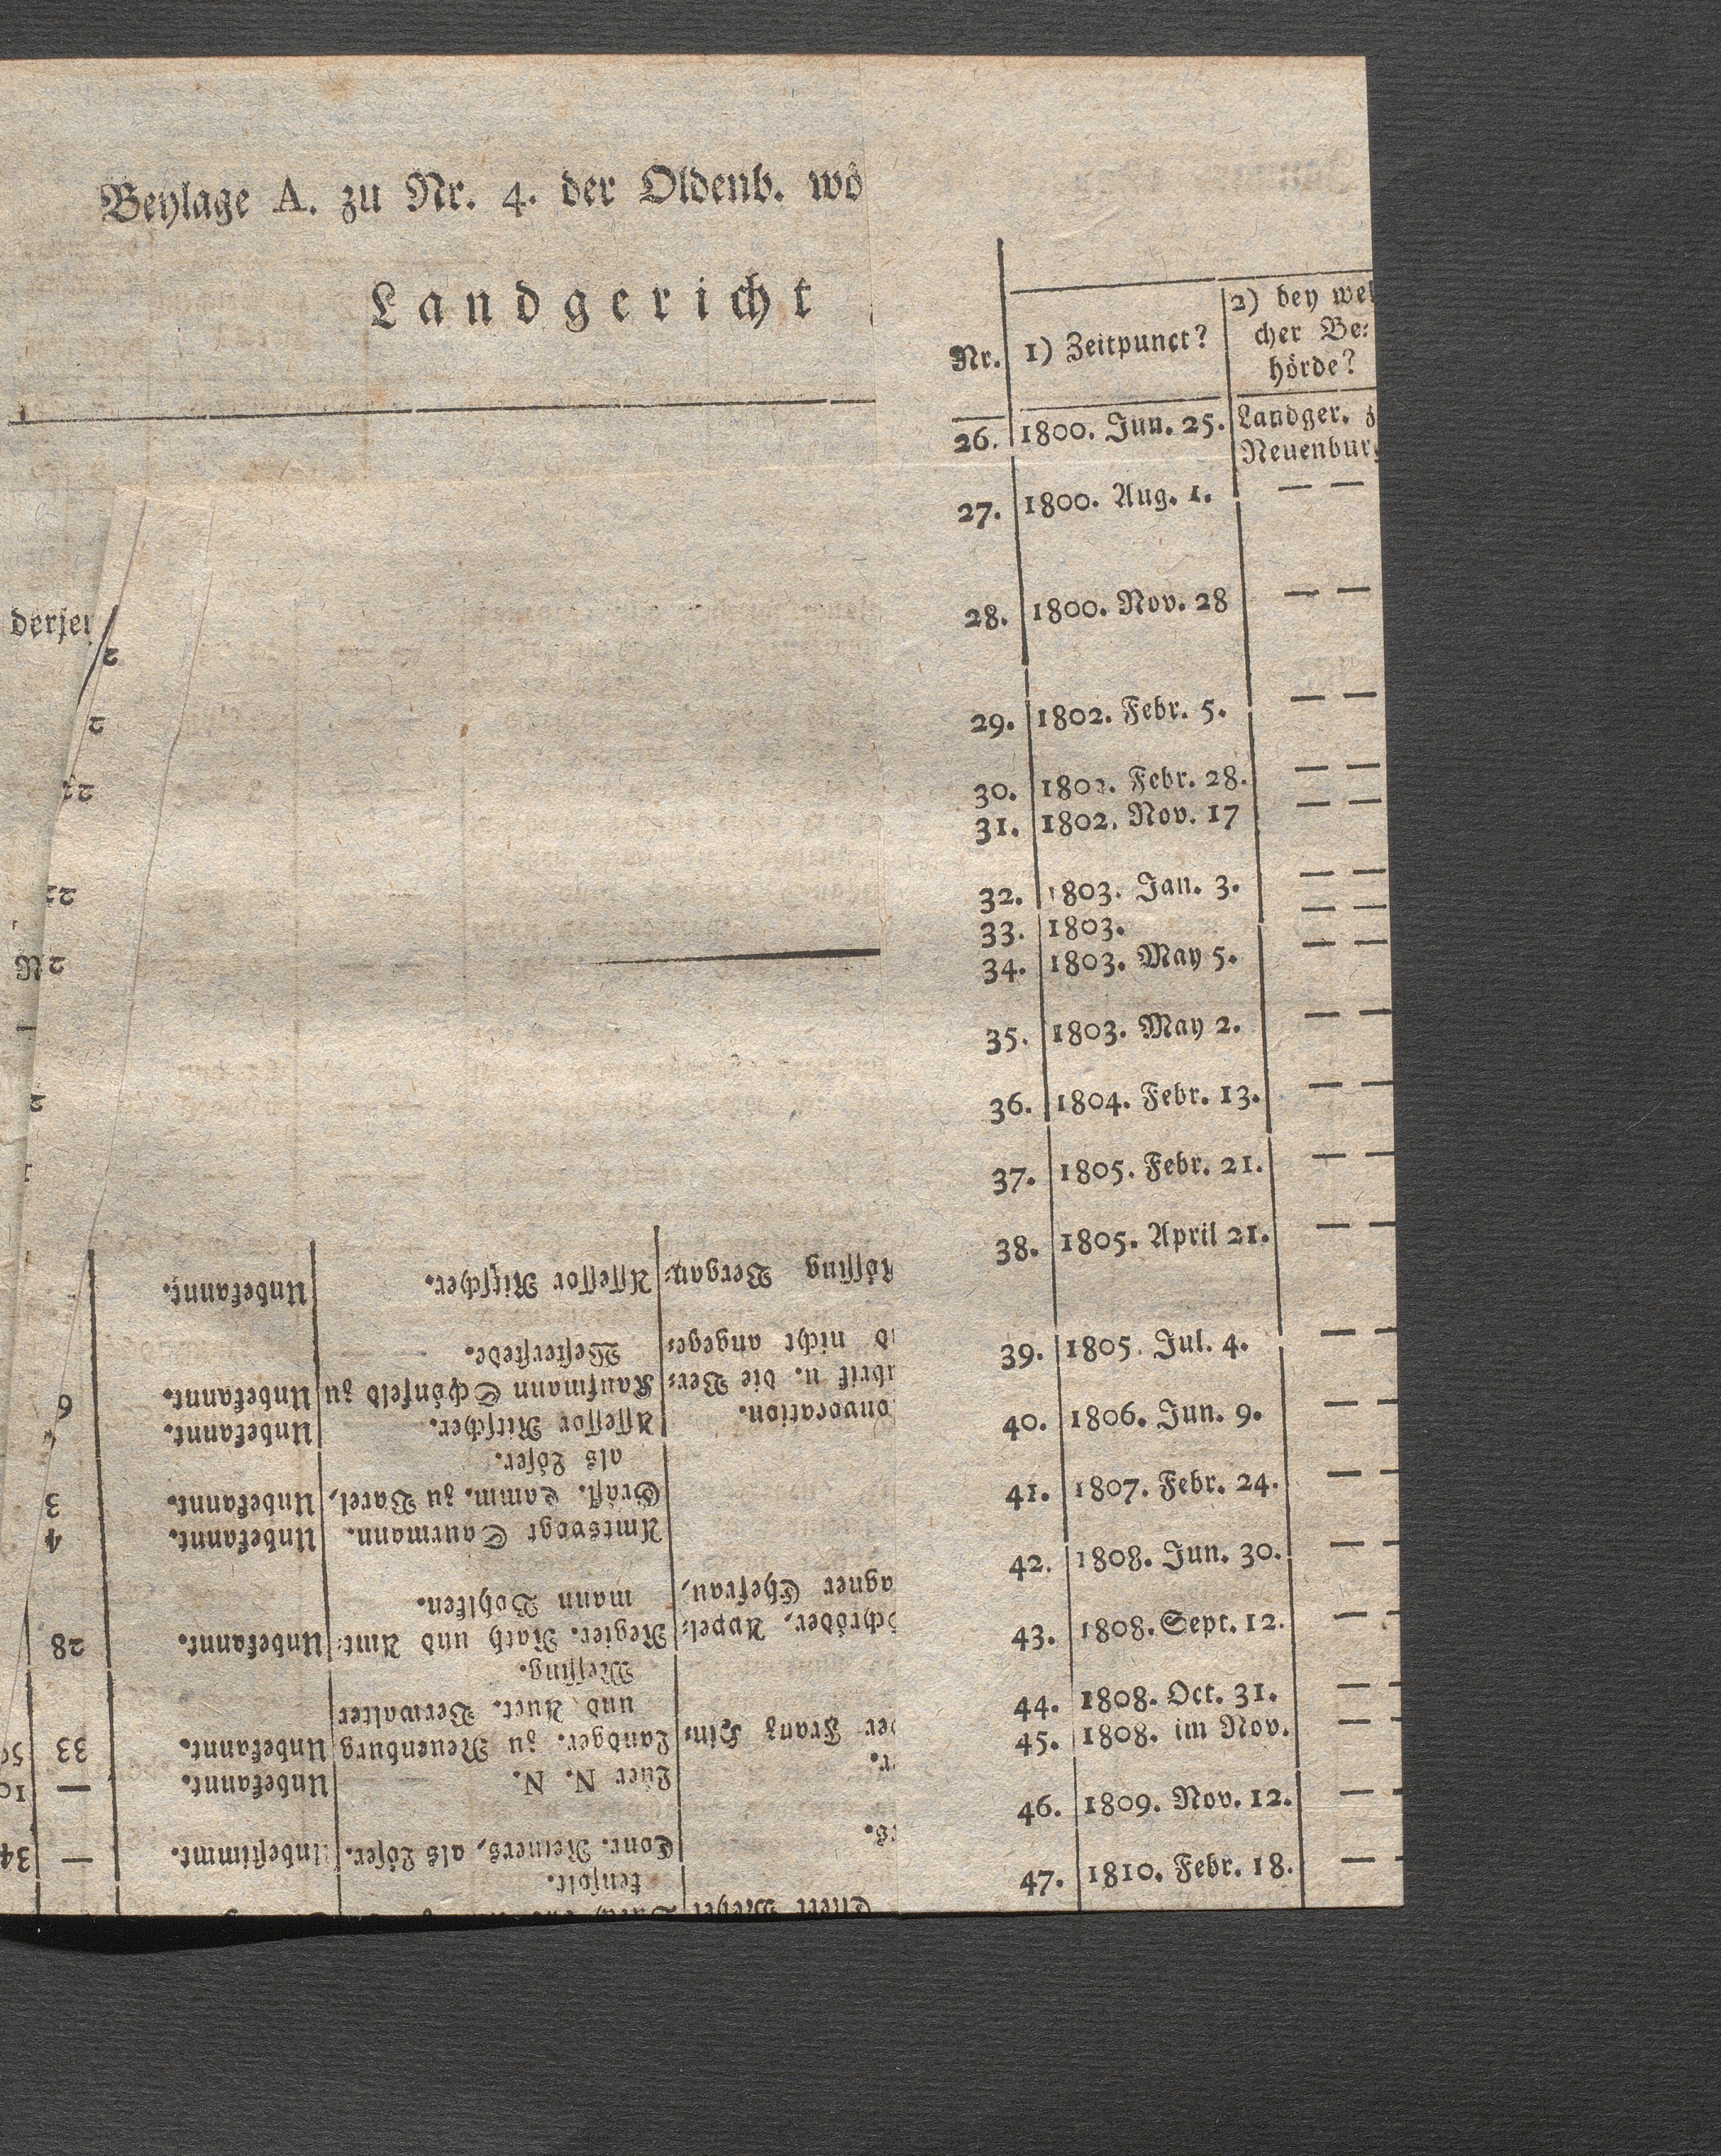 Beylage A. zu Nr. 4. der Oldenb. wö
Landgericht
Nr. 1) Zeitpunct? 2) bey wel
cher Be:
hörde?
26. 1800. Jun. 25. Landger. z
Neuenburg
27. 1800. Aug. 1. — —
28. 1800. Nov. 28 — —
29. 1802. Febr. 5. — —
30. 1802. Febr. 28. — —
31. 1802. Nov. 17 — —
32. 1803. Jan. 3. — —
33. 1803. — —
34. 1803. May 5. — —
35. 1803. May 2. — —
36. 1804. Febr. 13. — —
37. 1805. Febr. 21. — —
38. 1805. April 21. — —
39. 1805. Jul. 4. — —
40. 1806. Jun. 9. — —
41. 1807. Febr. 24. — —
42. 1808. Jun. 30. — —
43. 1808. Sept. 12. — —
44. 1808. Oct. 31. — —
45. 1808. im Nov. — —
46. 1809. Nov. 12. — —
47. 1810. Febr. 18. — —
derjei
tensolt.
s. Conr. Reiners, als Löser. Unbestimmt. — 34
r. Lüer N. N. Unbekannt. — 10
er Franz Hin: Landger. zu Neuenburg Unbekannt. 33
und Auct. Verwalter
Messing.
Schröder, Appel: Regier. Rath und Amt: Unbekannt. 28
agner Ehefrau, mann Bohlken.
Amtsvogt Caurmann. Unbekannt. 4
Gräfl. Camm. zu Varel, Unbekannt. 3
als Löser.
onvocation. Assessor Ritscher. Unbekannt.
ubrik u. die Ver: Kaufmann Schönfeld zu Unbekannt. 6
d nicht angege: Westerstede.
Kössing Vergan: Assessor Ritscher. Unbekannt.